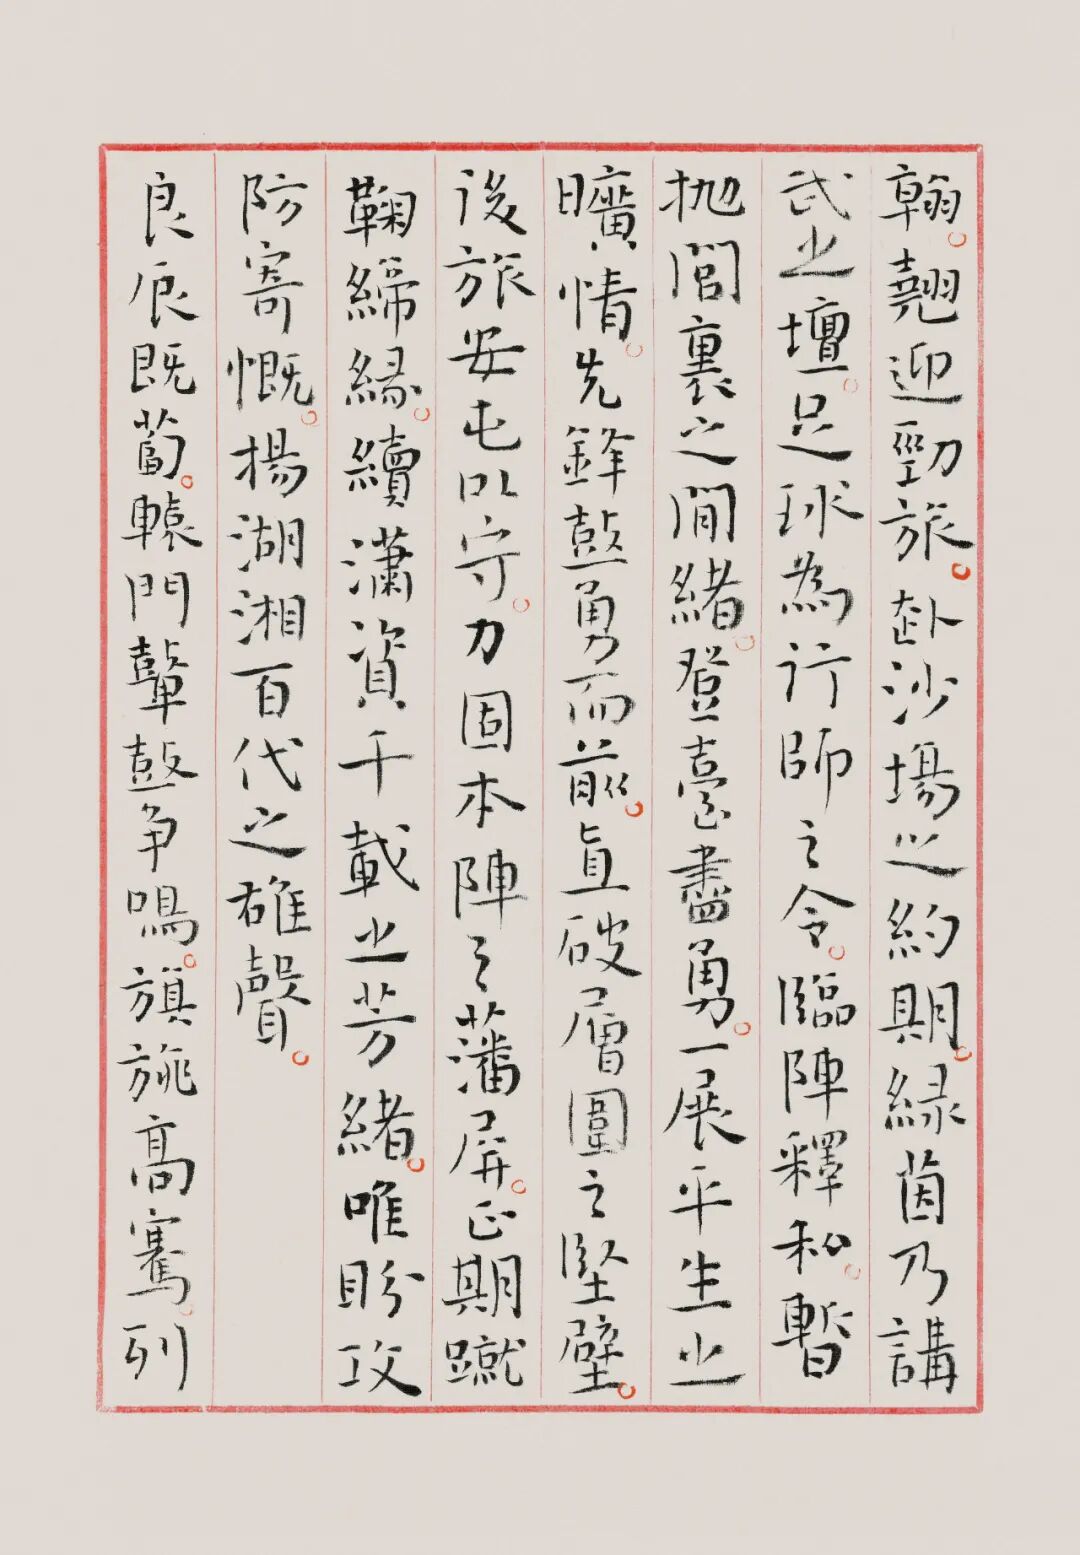 翰。翹迎勁旅。赴沙場之約期。緑茵乃講
武之壇。足球為行師之令。臨陣釋私。暫
抛閭裏之閒緒。登臺盡勇。一展平生之
曠情。先鋒鼓勇而前。直破層圍之堅壁。
後旅安屯以守。力固本陣之藩屏。正期蹴
鞠締緣。續瀟資千載之芳緒。唯盼攻
防寄慨。揚湖湘百代之雄聲。
良辰既蔔。轅門鼙鼓爭鳴。旗旐高騫。列